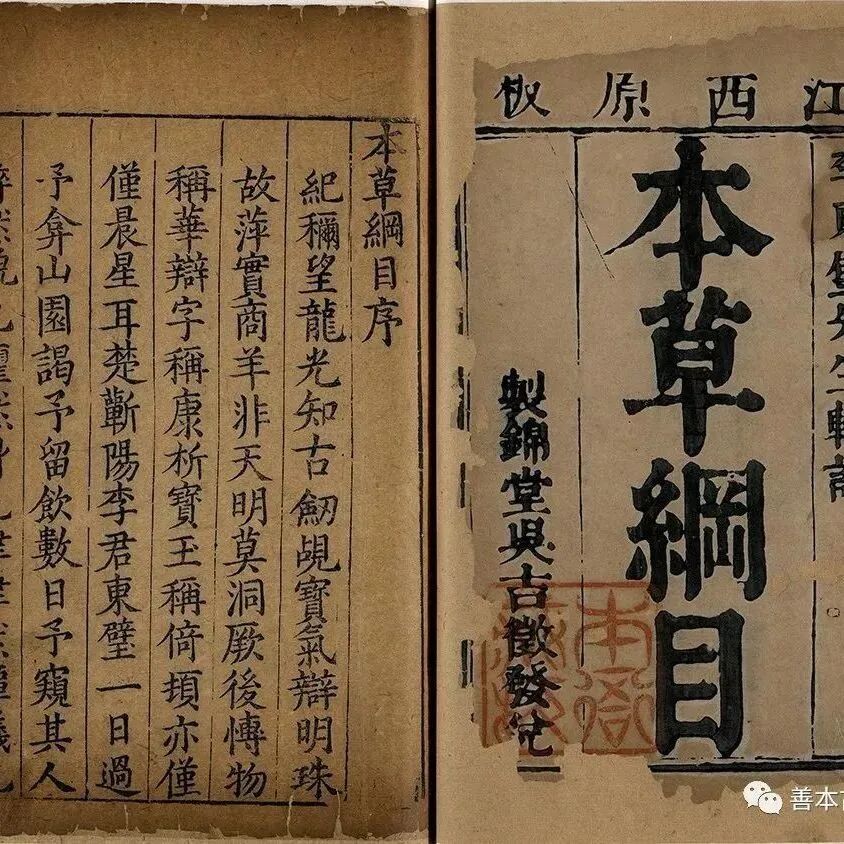 江西原板
先生輯
本草綱目
製錦堂吳吉徵發兌
本衙藏板
本草綱目序
紀穪望龍光知古劒覘寶氣辯明珠
故萍實商羊非天明莫洞厥後愽物
稱華辯字稱康析寶玉稱倚頓亦僅
僅晨星耳楚蘄陽李君東璧一日過
予弇山園謁予留飲數日予窺其人
善本古